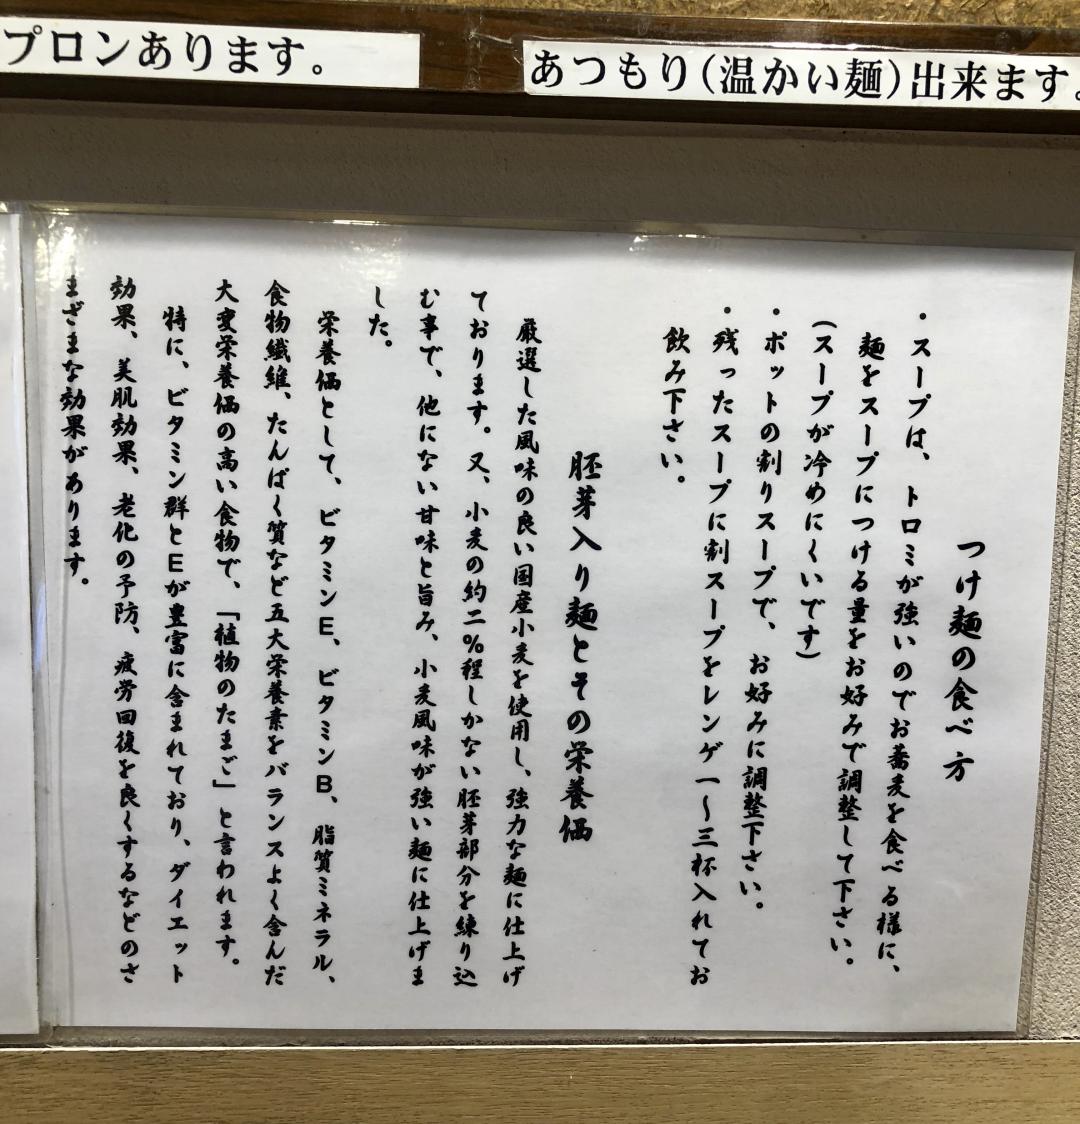 プロンあります。
あつもり(温かい麺)出来ます。
つけ麺の食べ方
・スープは、トロミが強いのでお蕎麦を食べる様に、
麺をスープにつける量をお好みで調整して下さい。
(スープが冷めにくいです)
・ポットの割りスープで、お好みに調整下さい。
・残ったスープに割スープをレンゲ一〜三杯入れてお
飲み下さい。
胚芽入り麺とその栄養価
厳選した風味の良い国産小麦を使用し、強力な麺に仕上げ
ております。又、小麦の約二%程しかない胚芽部分を練り込
む事で、他にない甘味と旨み、小麦風味が強い麺に仕上げま
した。
栄養価として、ビタミンE、ビタミンB、脂質ミネラル、
食物繊維、たんぱく質など五大栄養素をバランスよく含んだ
大変栄養価の高い食物で、「植物のたまご」と言われます。
特に、ビタミン群とEが豊富に含まれており、ダイエット
効果、美肌効果、老化の予防、疲労回復を良くするなどのさ
まざまな効果があります。